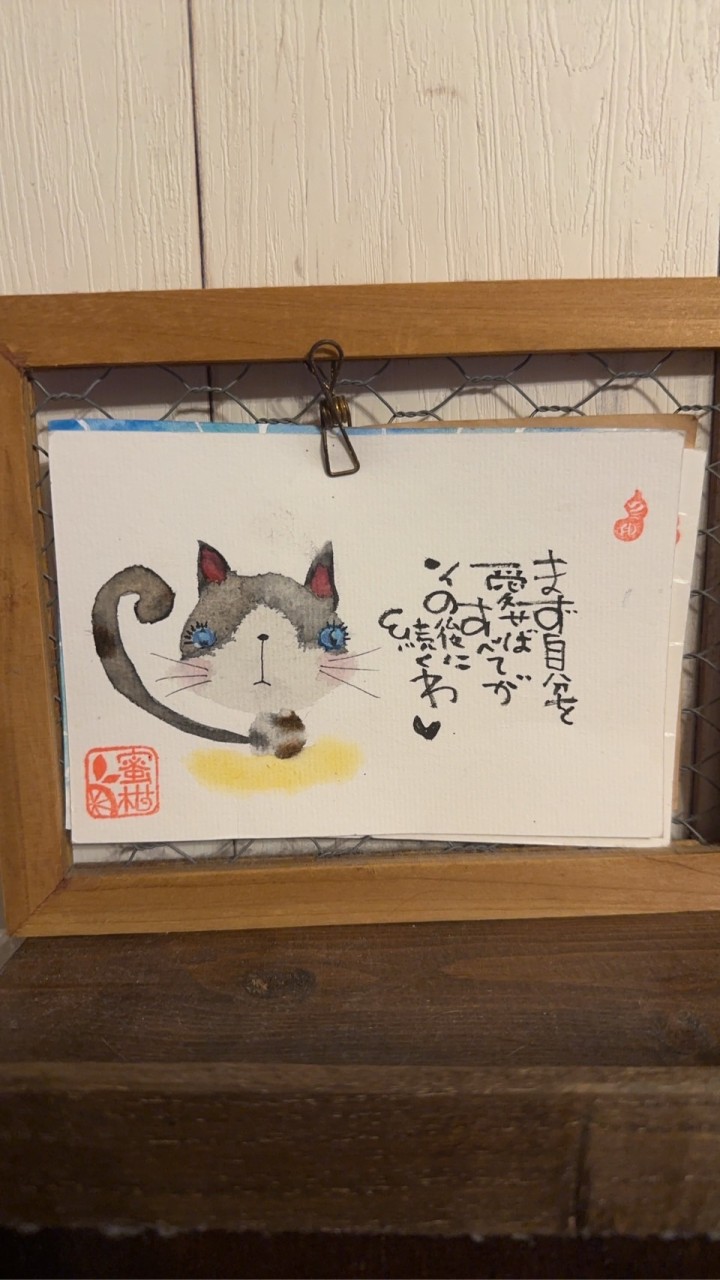 まず自分を
愛せば
すべてが
その後に
続くわ♥
蜜柑